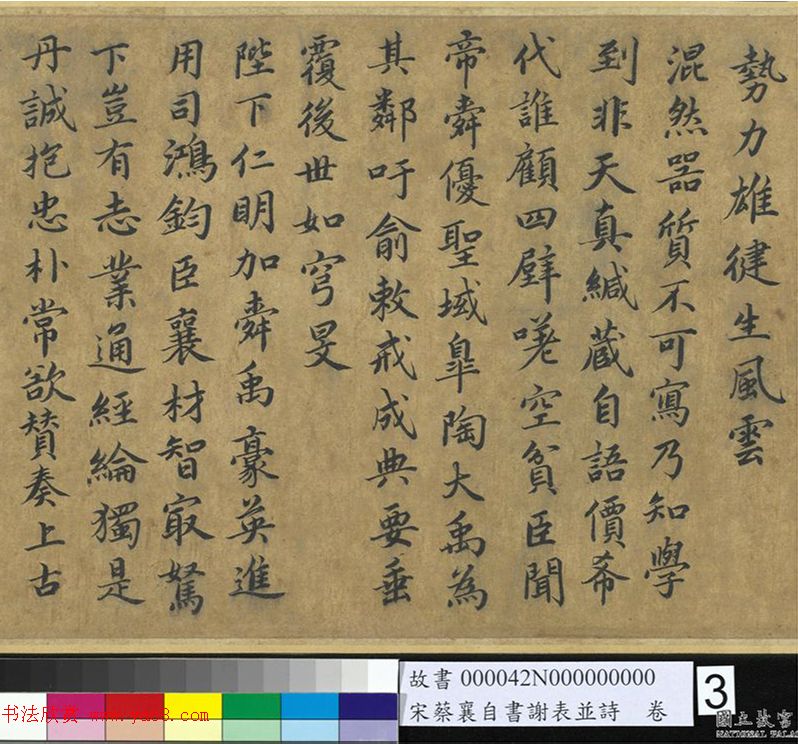 勢力雄徤生風雲
混然器質不可寫乃知學
到非天真緘藏自語價希
代誰顧四壁嗟空貧臣聞
帝舜優聖域臯陶大禹為
其鄰吁俞敕戒成典要垂
覆後世如穹旻
陛下仁明加舜禹豪英進
用司鴻鈞臣襄材智最駑
下豈有志業通經綸獨是
丹誠抱忠朴常欲贊奏上古
故書 000042N000000000
宋蔡襄自書謝表並詩 卷
3
書法欣賞
國立故宮
NATIONAL PALA